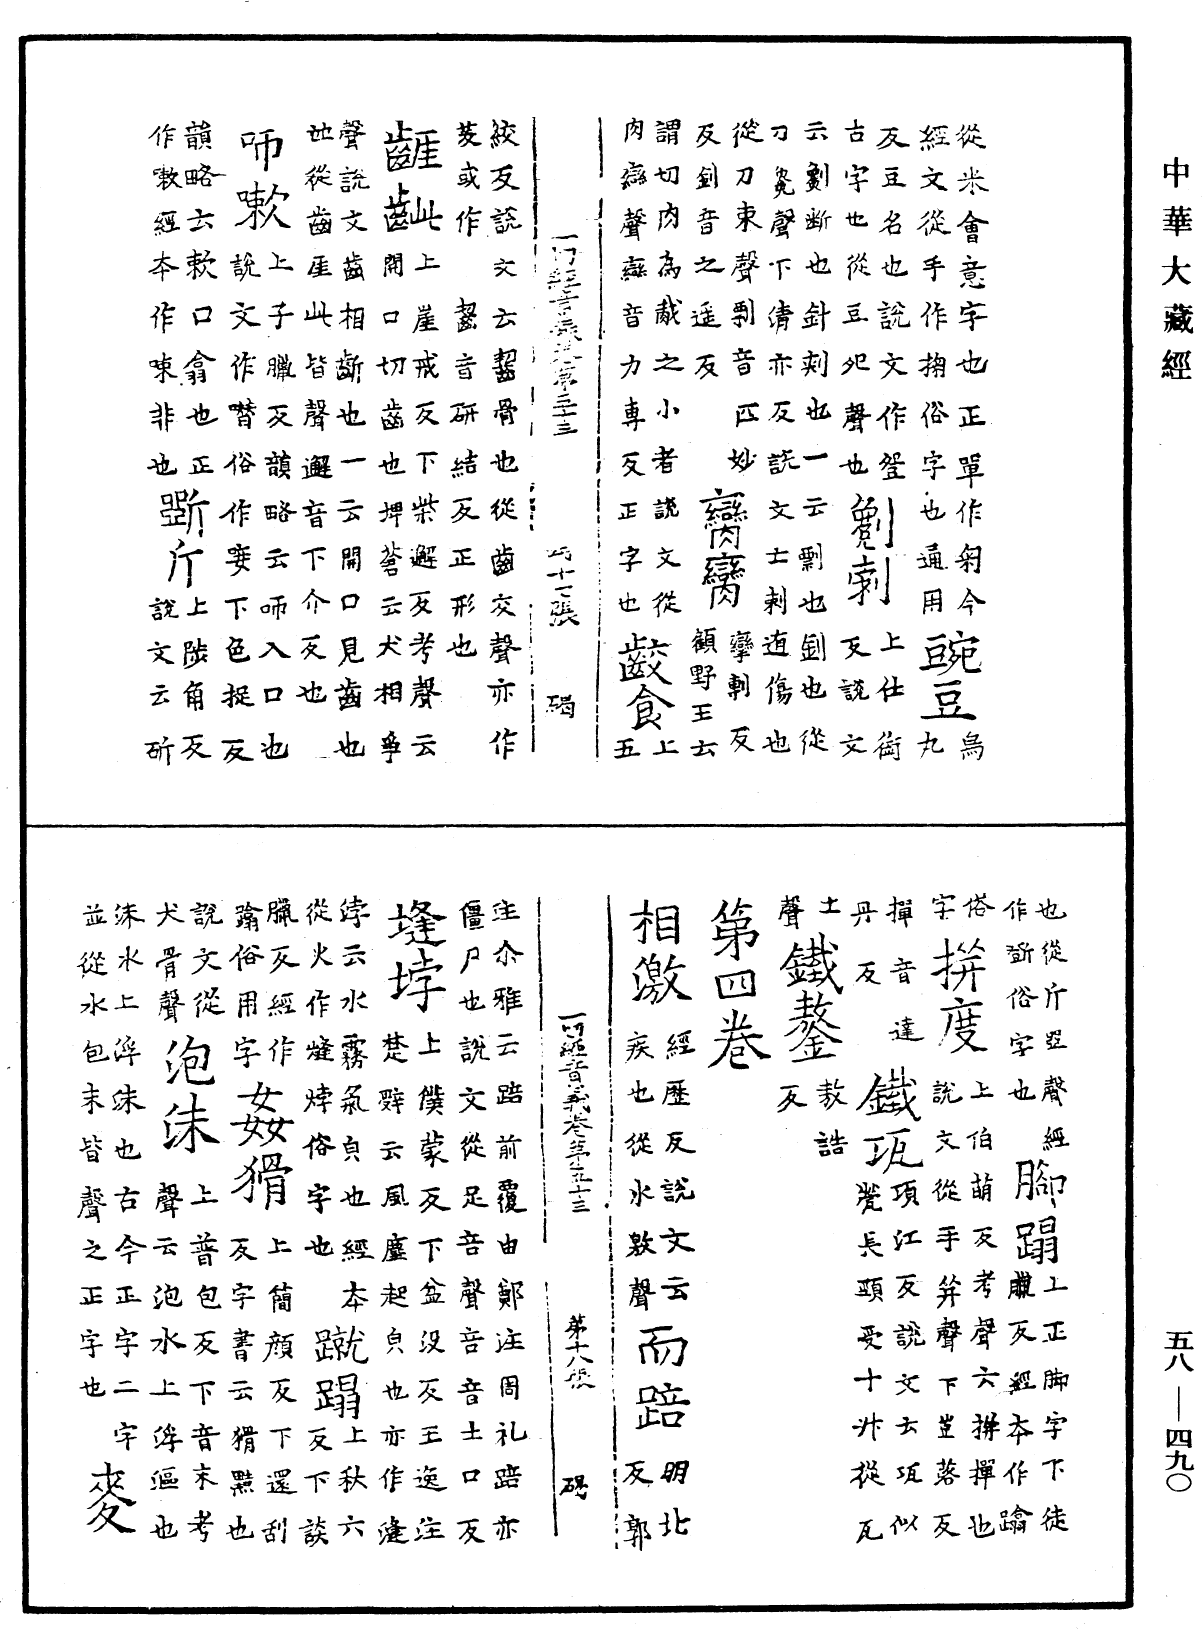 中華大藏經
從米會意字也正單作匊今
經文從手作掬俗字也通用
豌豆
烏
丸
反豆名也說文作登
古字也從豆夗聲也
劖刺
上仕銜
反說文
云劖斷也針刺也一云剽也釗也從
刀毚聲下清亦反說文士刺逎傷也
從刀朿聲剽音匹妙
反釗音之遥反
臠臠
攣剸反
顧野王云
謂切肉為胾之小者說文從
肉䜌聲䜌音力專反正字也
齩食
上
五
一切經音義卷第五十三 第十七張 碣
絞反說文云齧骨也從齒交聲亦作
䶧或作 齧音研結反正形也
齜
上崖戒反下柴邂反考聲云
開口切齒也埤蒼云犬相爭
聲說文齒相齗也一云開口見齒也
也從齒厓此皆聲邂音下介反也
咂嗽
上子臘反韻略云咂入口也
說文作噆俗作唼下色捉反
韻略云欶口翕也正
作嗽經本作㖩非也
斲斤
上陟角反
說文云斫
也從斤㔷聲經
作斵俗字也
腳蹋
上正脚字下徒
臘反經本作蹹
俗
字
拼度
上伯萌反考聲云拼撣也
說文從手并聲下豈落反
撣音達
丹反
鐵瓨
項江反說文云瓨似
甖長頸受十升從瓦
工
聲
鐵鏊
敖誥
反
第四卷
相激
經歷反說文云
疾也從水敫聲
而踣
朋北
反郭
一切經音義卷第五十三 第十八張 碣
注尒雅云踣前覆由鄭注周礼踣亦
僵尸也說文從足咅聲咅音土口反
塳㘺
上僕蒙反下盆没反王逸注
楚辭云風塵起皃也亦作漨
浡云水霧氣皃也經本
從火作熢㶿俗字也
蹴蹋
上秋六
反下談
臘反經作
蹹俗用字
姦猾
上簡顏反下還刮
反字書云猾黠也
說文從
犬骨聲
泡沫
上普包反下音末考
聲云泡水上浮漚也
沫水上浮沫也古今正字二字
並從水包末皆聲之正字也
麥
五八—四九〇